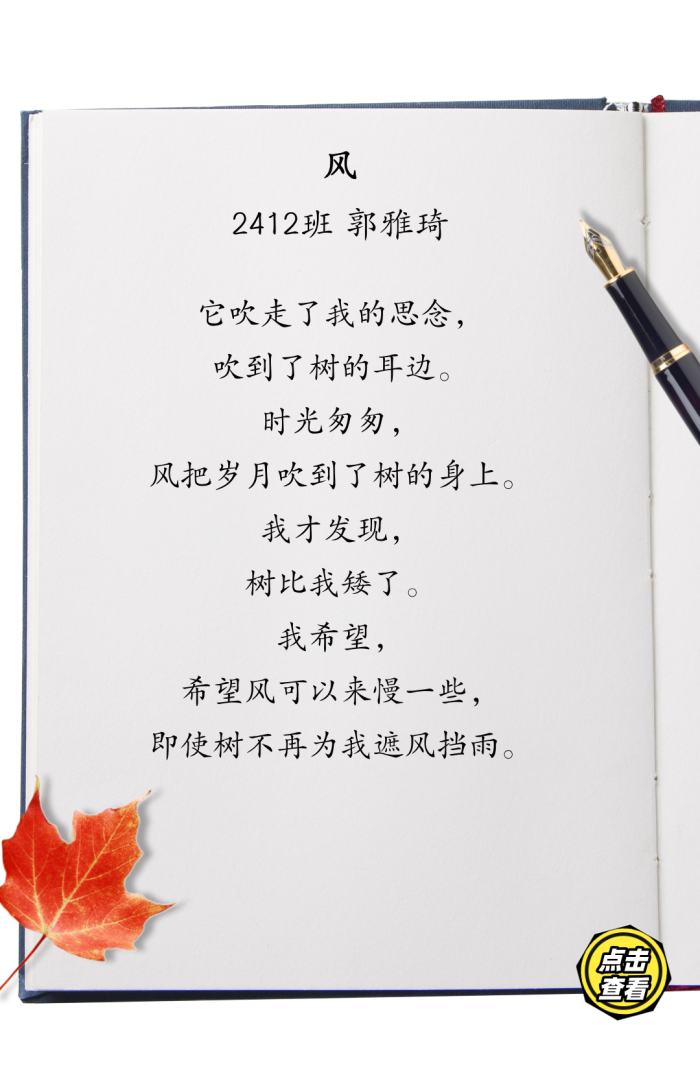 风
2412班 郭雅琦
它吹走了我的思念，
吹到了树的耳边。
时光匆匆，
风把岁月吹到了树的身上。
我才发现，
树比我矮了。
我希望，
希望风可以来慢一些，
即使树不再为我遮风挡雨。
点击
查看